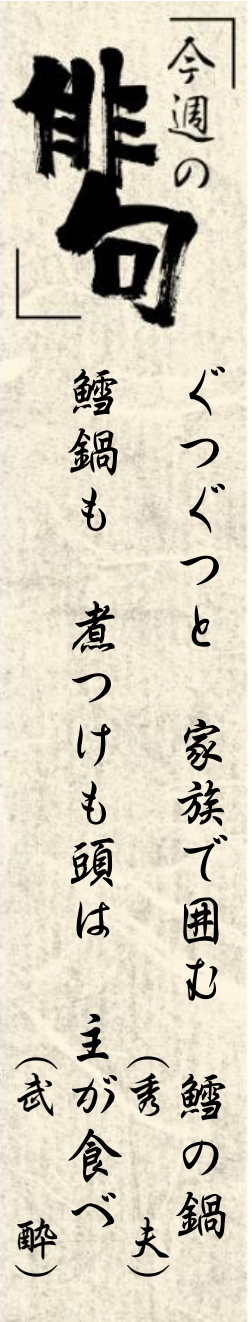 「今週の
俳句」
ぐつぐつと 家族で囲む 鱈の鍋
(秀夫)
鱈鍋も 煮つけも頭は 主が食べ
(武酔)